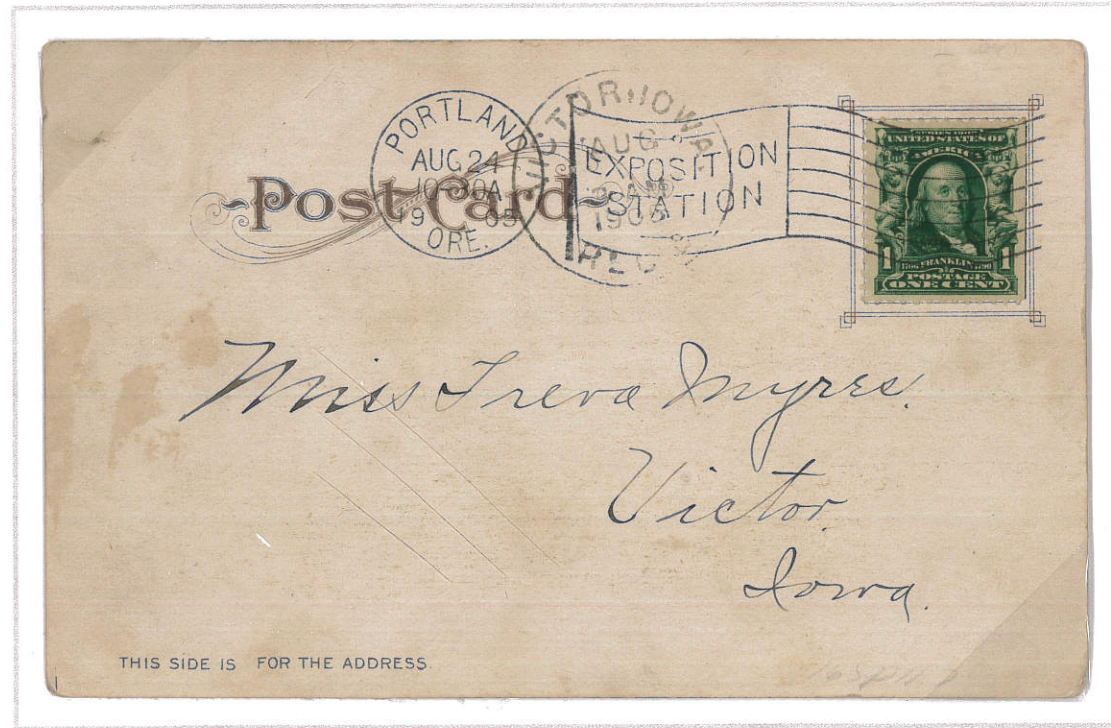 PORTLAND
AUG 24
10-30A
1905
ORE.
VICTOR, IOWA
AUG
1905
REC'D
EXPOSITION
STATION
Post Card
SERIES 1902
UNITED STATES OF
AMERICA
1 1706 FRANKLIN 1790 1
POSTAGE
ONE CENT
Miss Treva Myres.
Victor
Iowa.
THIS SIDE IS FOR THE ADDRESS.